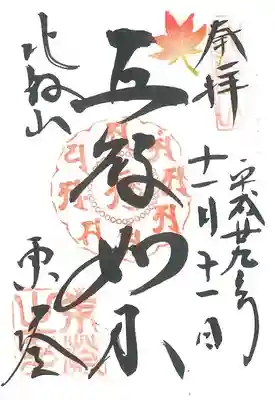 奉拝
平成廿九年
十一月十一日
五智如来
比叡山
東塔